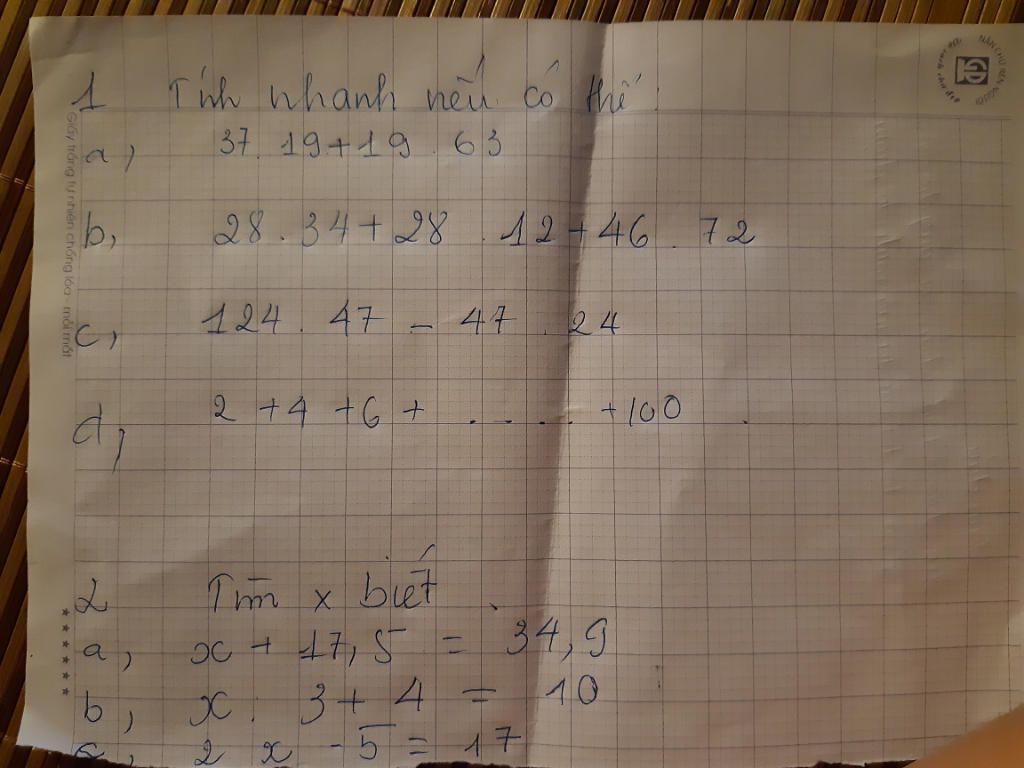 1 Tính nhanh nếu có thể
a, 37 . 19 + 19 . 63
b, 28 . 34 + 28 . 12 + 46 . 72
c, 124 . 47 - 47 . 24
d, 2 + 4 + 6 + ..... + 100 .
2 Tìm x biết .
a, x + 17,5 = 34,9
b, x : 3 + 4 = 10
c, 2 x - 5 = 17
Giấy trắng tự nhiên chống lóa - mỏi mắt